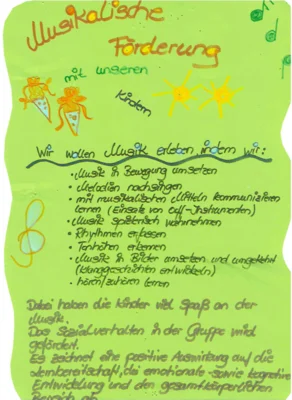 Musikalische
Förderung
mit unseren
Kindern
Wir wollen Musik erleben indem wir:
• Musik in Bewegung umsetzen
• Melodien nachsingen
• mit musikalischen Mitteln kommunizieren
lernen (Einsatz von Orff-Instrumenten)
• Musik spielerisch wahrnehmen
• Rhythmen erfassen
• Tonhöhen erkennen
• Musik in Bilder umsetzen und umgekehrt
(Klanggeschichten entwickeln)
• hören/zuhören lernen
Dabei haben die Kinder viel Spaß an der
Musik.
Das Sozialverhalten in der Gruppe wird
gefördert.
Es zeichnet eine positive Auswirkung auf die
Lernbereitschaft, die emotionale sowie kognitive
Entwicklung und den gesamtkörperlichen
Bereich ab.